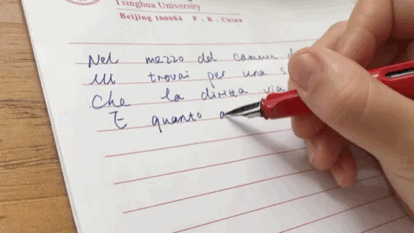 Tsinghua University
Beijing 100084 P. R. China
Nel mezzo del cammin d
Mi trovai per una s
Che la diritta via
E quanto a